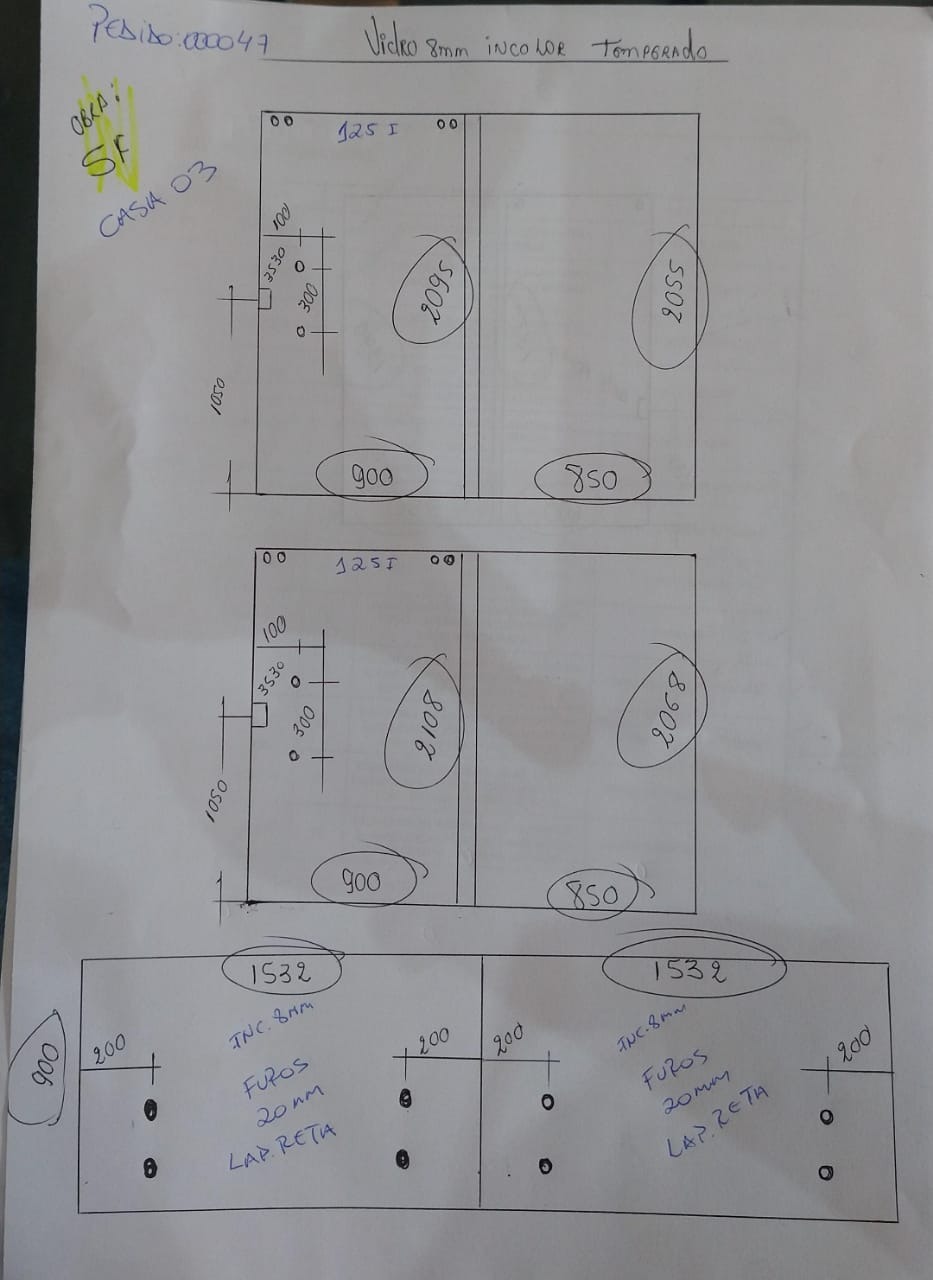 PEDIDO: 000047
Vidro 8mm incolor Temperado
OBRA:
SF
CASA 03
125 I
100
3530
300
1050
2095
2055
900
850
125 I
100
3530
300
1050
2108
2068
900
850
1532
1532
900
200
200
200
200
INC. 8mm
FUROS
20mm
LAP. RETA
INC. 8mm
FUROS
20mm
LAP. RETA